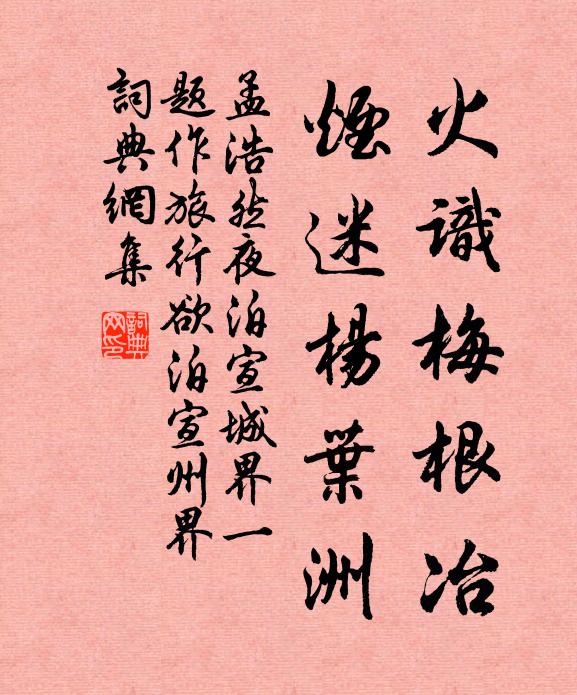 火識梅根冶
煙迷楊葉洲
孟浩然夜泊宣城界一
題作旅行欲泊宣州界
詞典網集
詞典網印